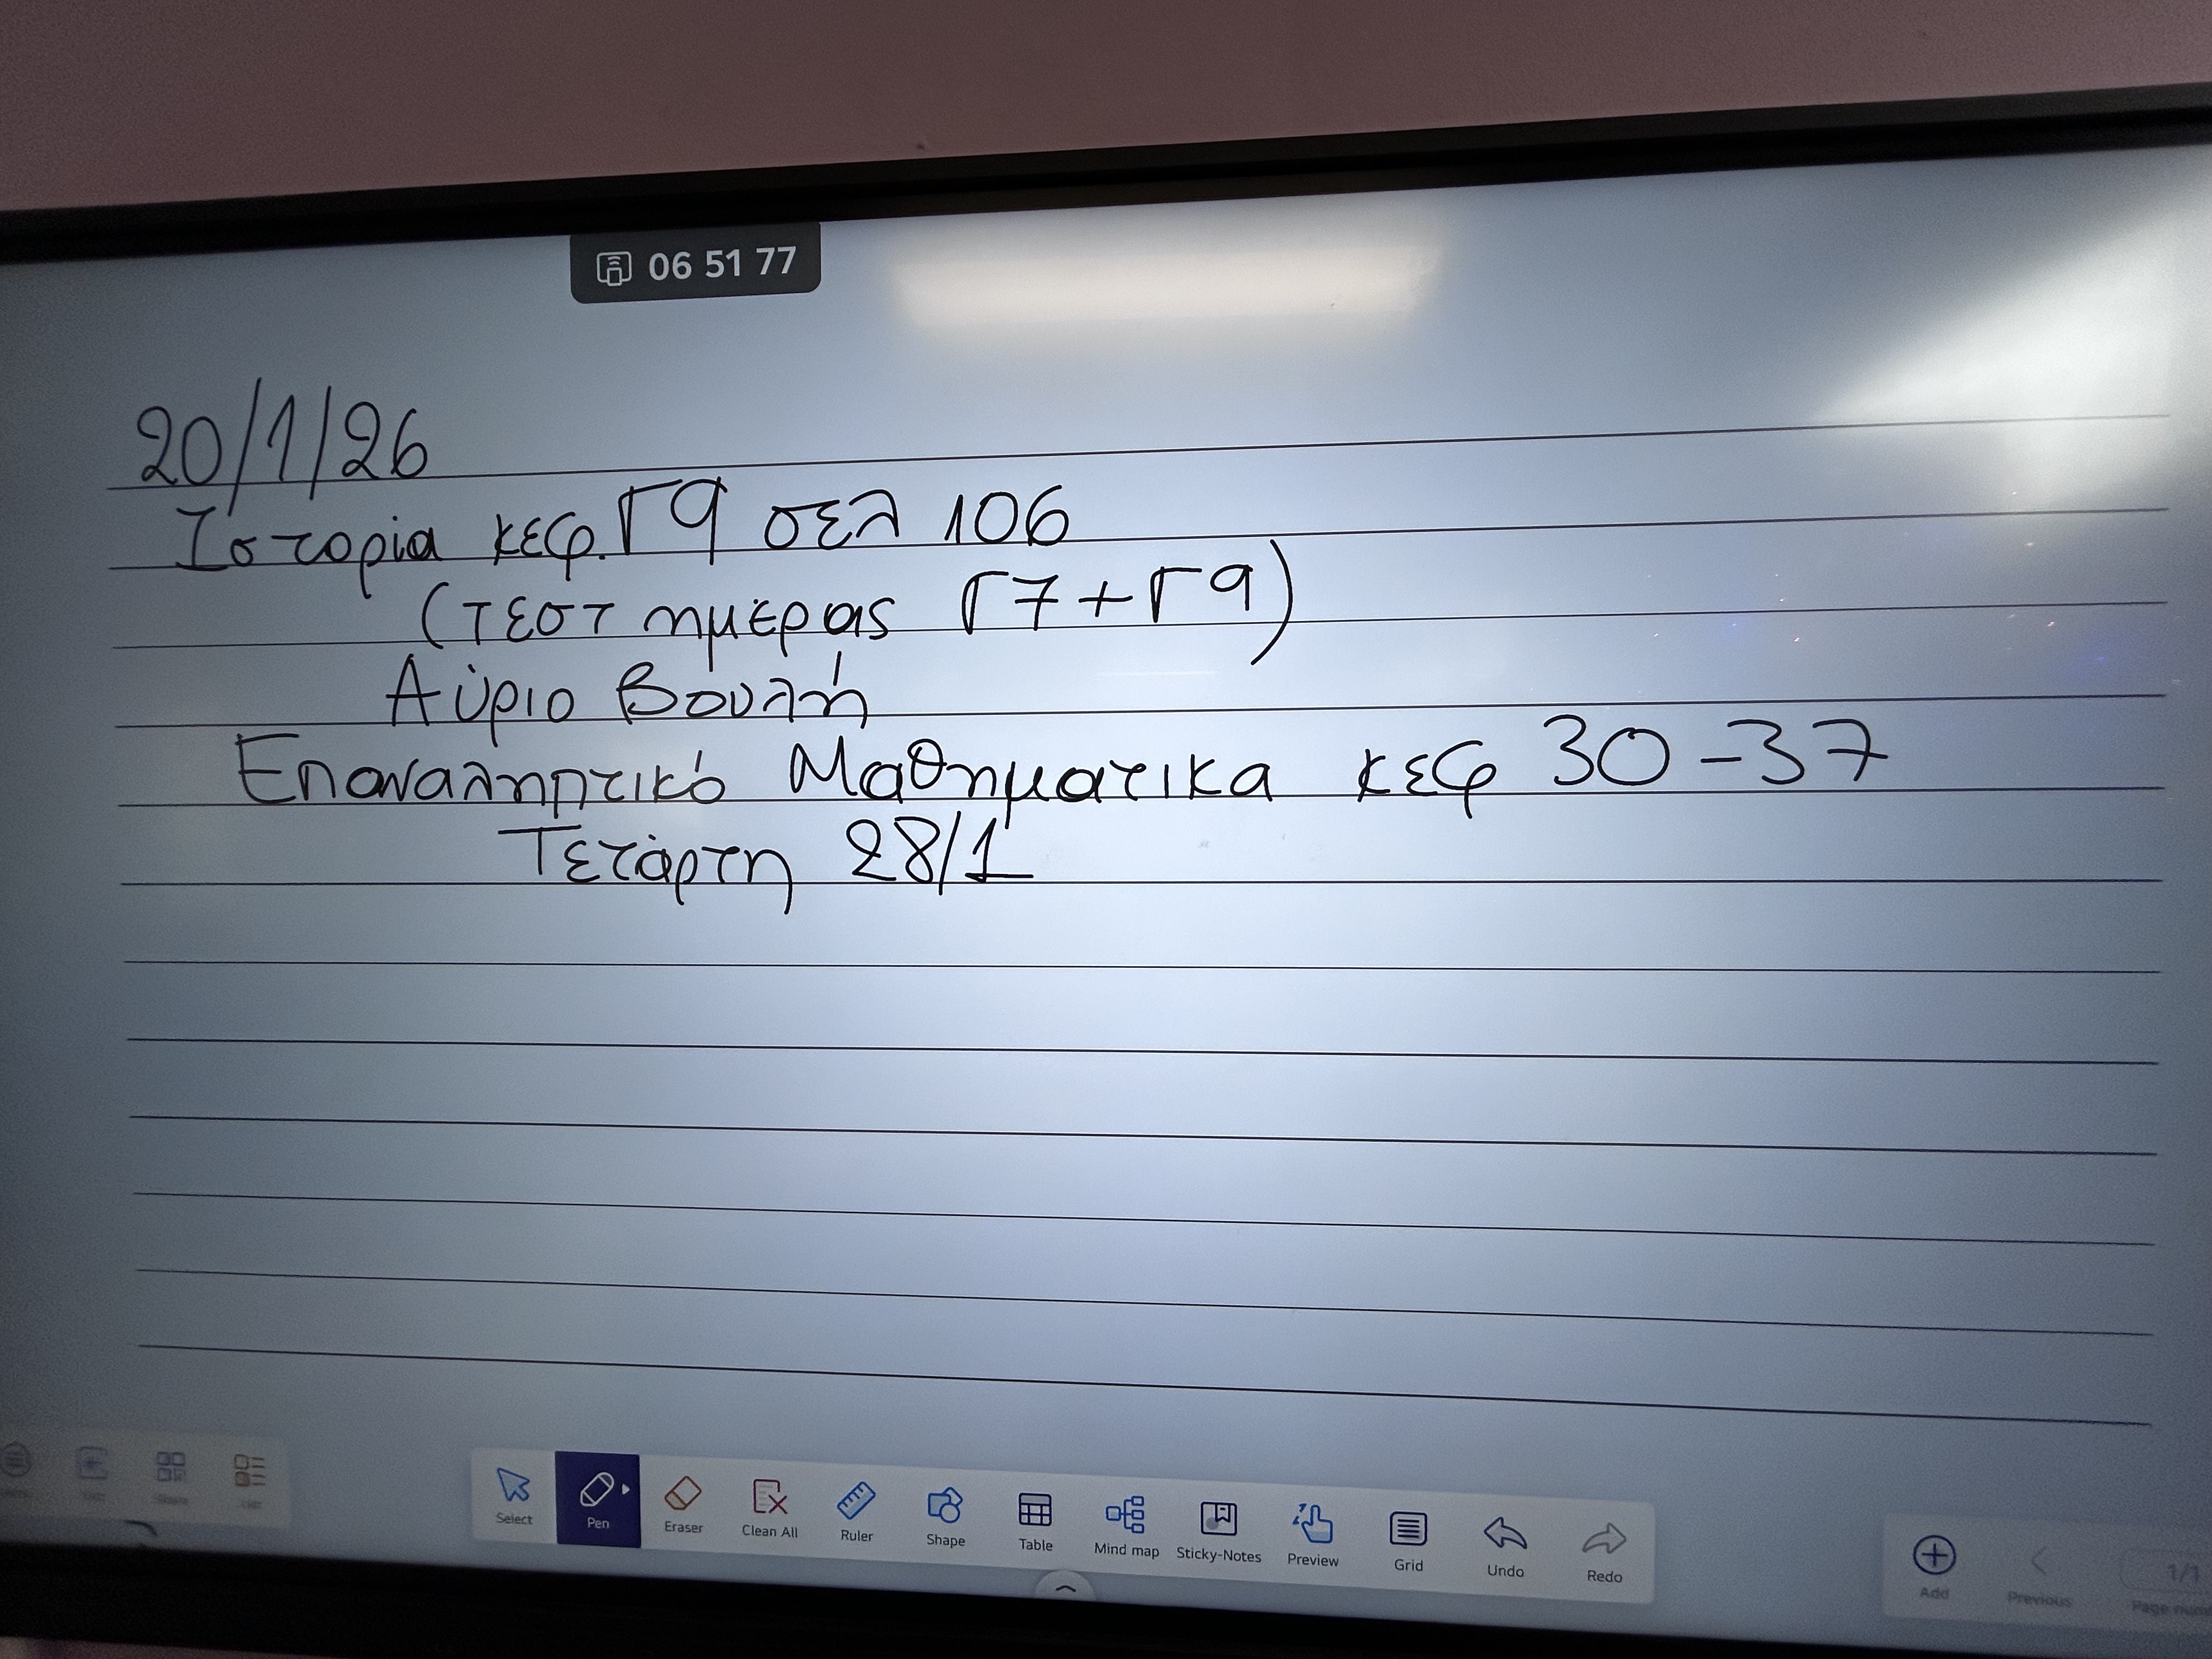 06 51 77
20/1/26
Ιστορία κεφ. Γ9 σελ 106
(τεστ ημέρας Γ7+Γ9)
Αύριο Βουλή
Επαναληπτικό Μαθηματικα κεφ 30-37
Τετάρτη 28/1
Select Pen Eraser Clean All Ruler Shape Table Mind map Sticky-Notes Preview Grid Undo Redo Add Previous 1/1